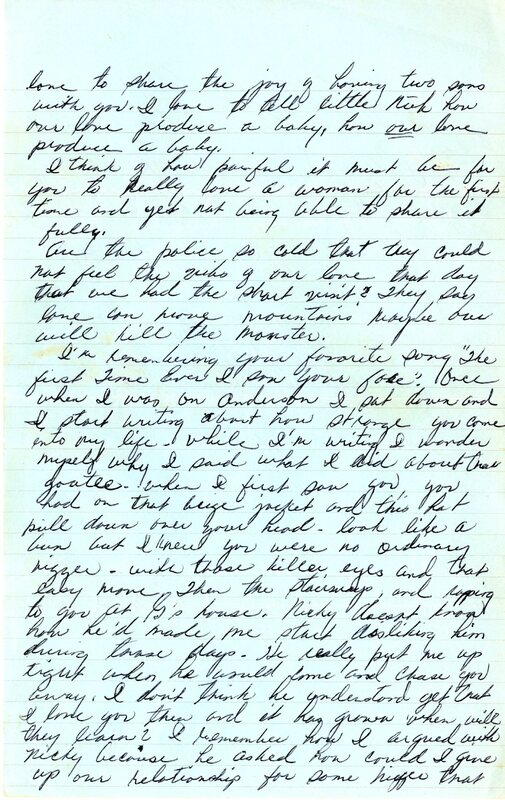 love to share the joy of having two sons
with you. I love to tell little Nick how
our love produce a baby, how our love
produce a baby.
I think of how painful it must be for
you to really love a woman for the first
time and yet not being able to share it
fully.
Are the police so cold that they could
not feel the vibs of our love that day
that we had the short visit? They say
love can move mountains maybe our
will kill the monster.
I'm remembering your favorite song "The
first Time Ever I saw Your face". Once
when I was on Anderson I sat down and
I start writing about how strange you come
into my life - while I'm writing I wonder
myself why I said what I did about that
goatee. When I first saw you, you
had on that beige jacket and this hat
pull down over your head - look like a
bum but I knew you were no ordinary
nigger - with those killer eyes and that
easy move. Then the stairway, and rapping
to you at G's house. Nicky doesn't know
how he'd made me start disliking him
during those days. He really put me up
tight when he would come and chase you
away. I don't think he understood yet that
I love you then and it has grown when will
they learn? I remember how I argued with
Nicky because he asked how could I give
up our relationship for some nigger that